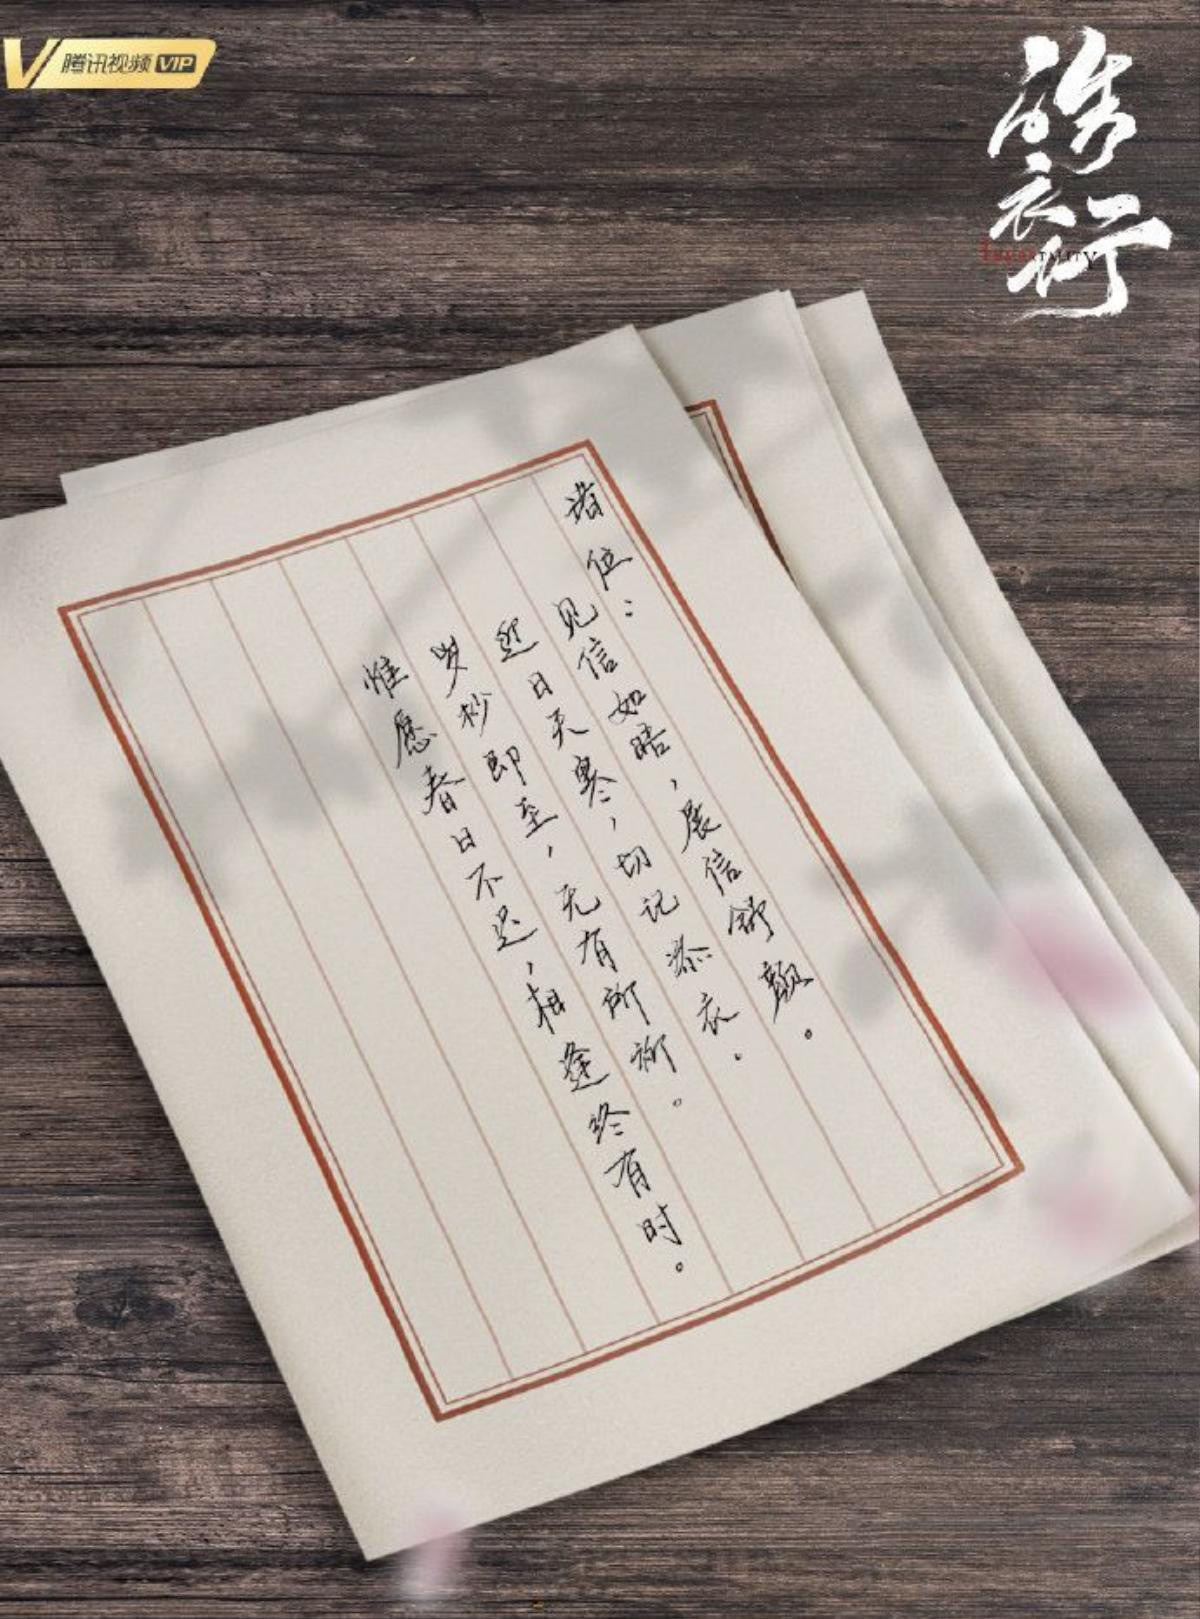 腾讯视频VIP
皓衣行
IMMORTALITY
诸位:
见信如晤,展信舒颜。
近日天寒,切记添衣。
岁杪即至,无有所御。
惟愿春日不迟,相逢终有时。